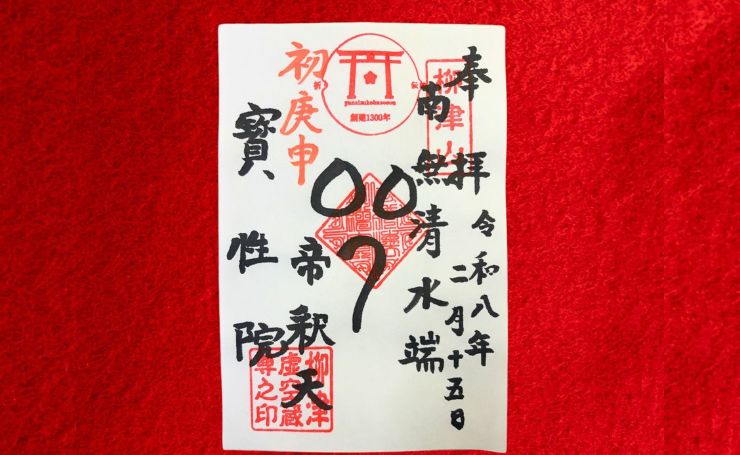 奉拝
令和八年
二月十五日
柳津山
南無清水端
創建1300年
00
7
帝釈天
初庚申
寶性院
柳津
虚空蔵
尊之印